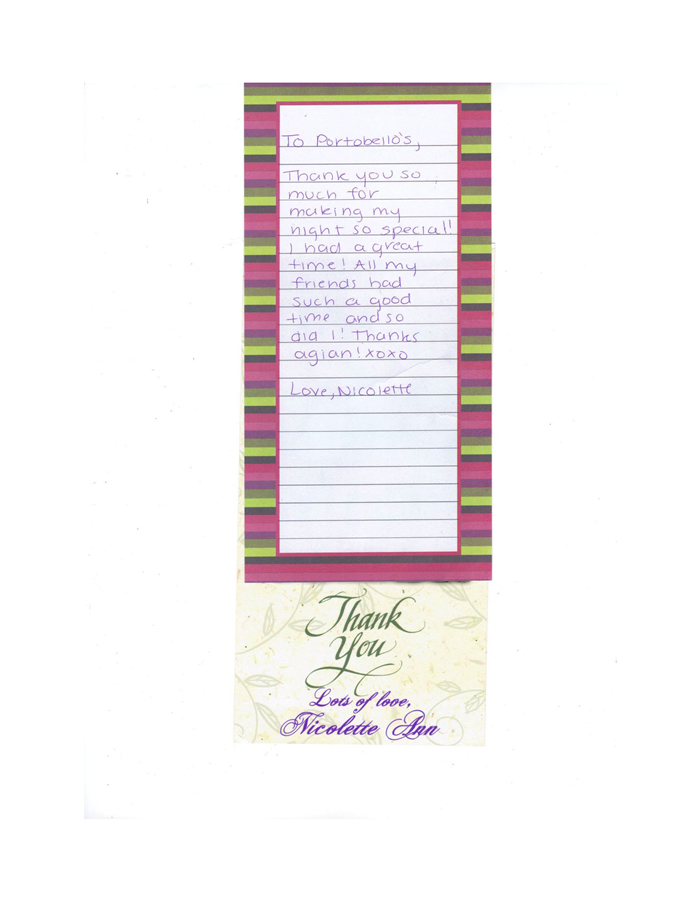 To Portobello's,
Thank you so
much for
making my
night so special!
I had a great
time! All my
friends had
such a good
time and so
did I! Thanks
agian! xoxo
Love, Nicolette
Thank
You
Lots of love,
Nicolette Ann